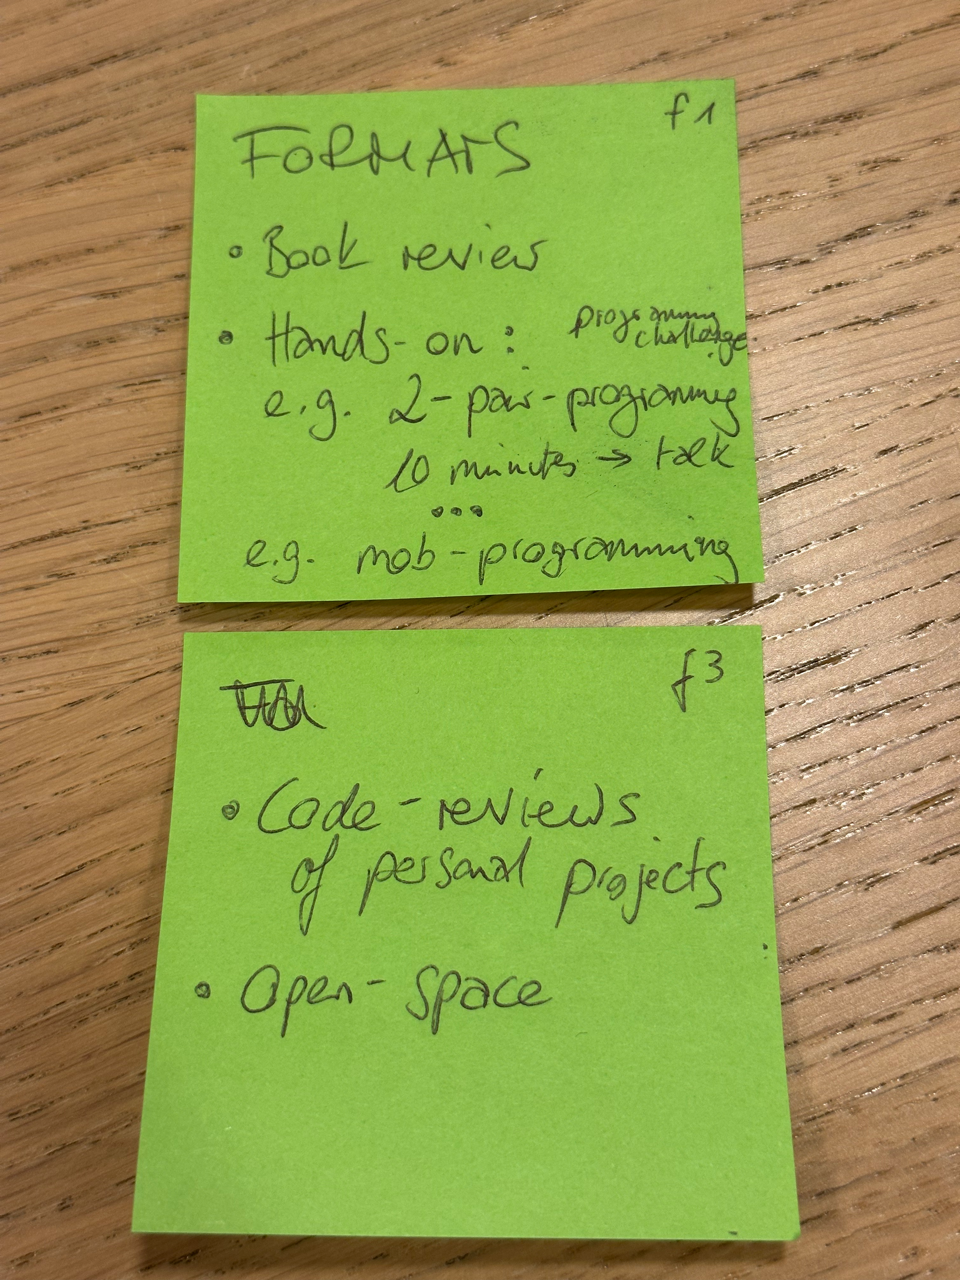 f1
FORMATS
• Book review
• Hands-on: programming challenge
e.g. 2-pair-programming
10 minutes → talk
...
e.g. mob-programming
f3
• Code-reviews
of personal projects
• Open-space